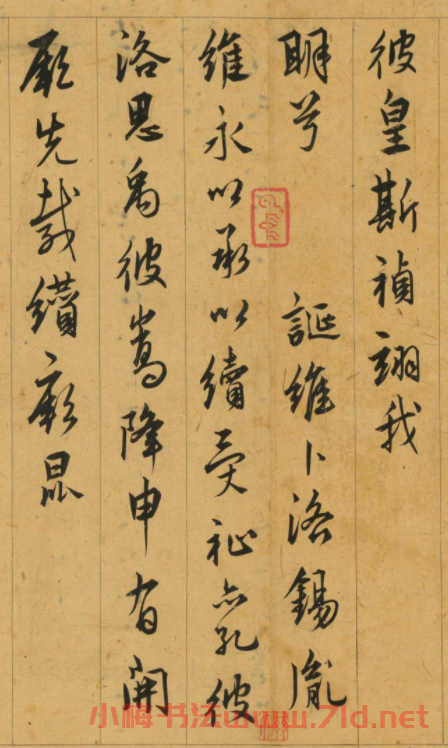 彼皇斯禎翊我
明兮 誕維卜洛錫胤
維永以承以續受祉亦孔彼
洛思禹彼嵩降申有開
厥先載纘厥昆
小梅书法www.7ld.net